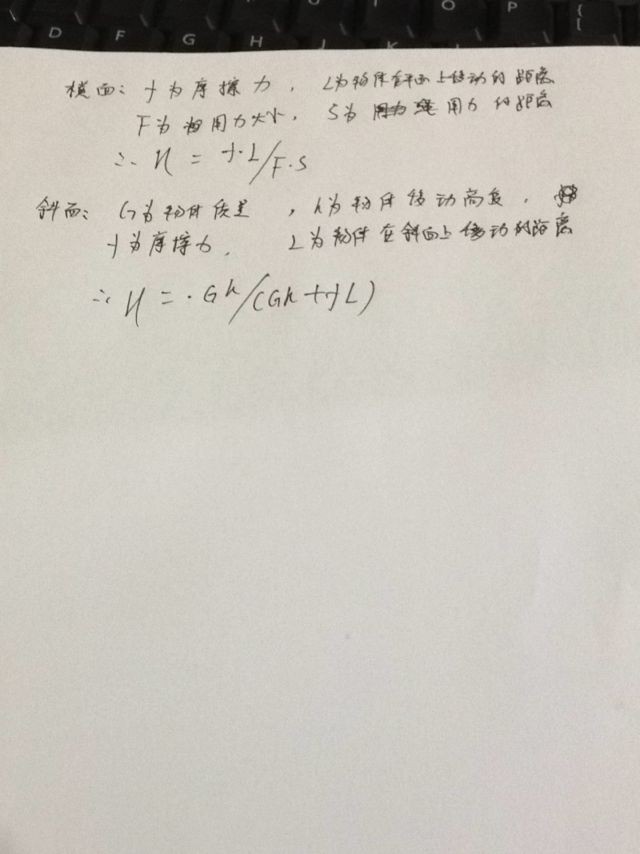 D F G H J K L I O P { [
横面: f为摩擦力, L为物体在斜面上移动的距离
F为用力大小, S为用力的距离
∴ η = f·L/F·S
斜面: G为物体质量, h为物体移动高度,
f为摩擦力, L为物体在斜面上移动的距离
∴ η = ·Gh/(Gh+fL)